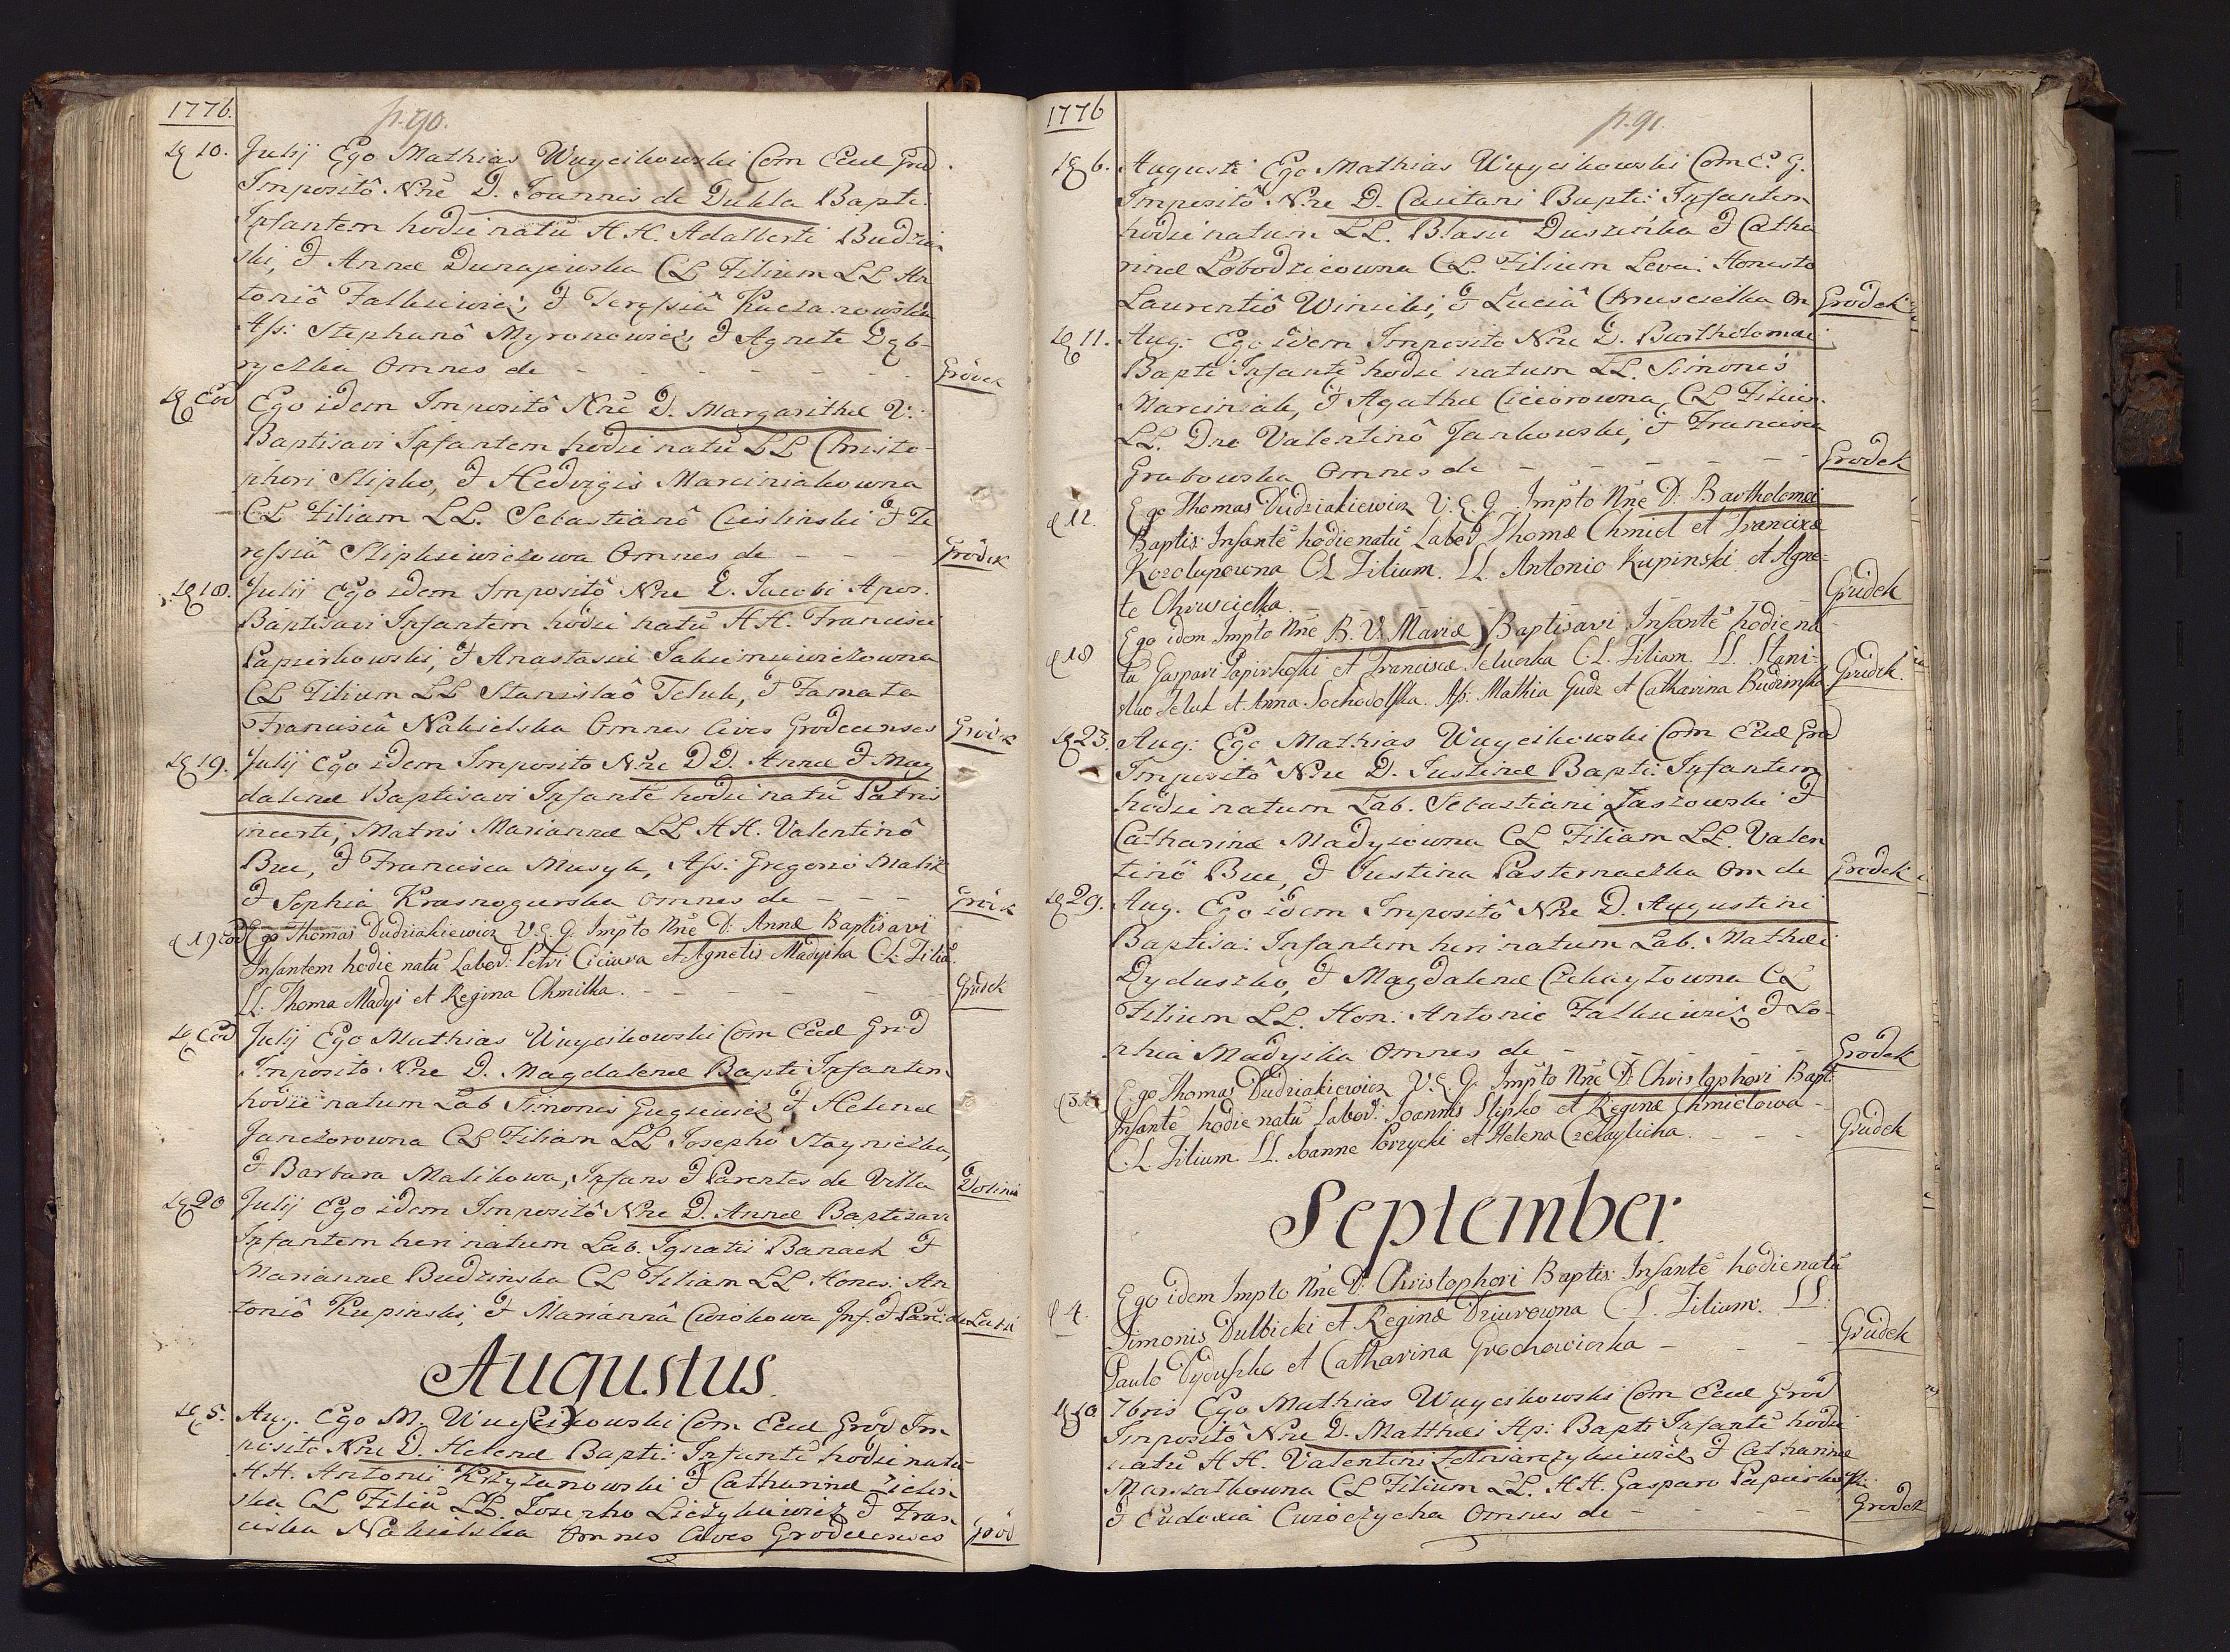 1776.
p. 90.
10. Julij Ego Mathias Wuycikowski Com Eccl Grod.
Impositô Nñe D. Joannis de Dukla Bapti.
Infantem hodie natũ H.H. Adalberti Budzin
ski, & Annæ Dunajewska CL Filium LL An
toniô Falkiewicz, & Teressiâ Kaczanowska
Ass: Stephanô Myronowicz & Agnete Dąb-
ryczka Omnes de - - - - - - - Gródek
Eod Ego idem Impositô Nñe D. Margarithæ V.
Baptisavi Infantem hodie natũ LL Christo-
phori Slipko, & Hedvigis Marciniakowna
CL Filiam LL. Sebastianô Cieslinski & Te
ressiâ Slipkiewiczowa Omnes de - - - Gródek
18. Julij Ego idem Impositô Nñe D. Jacobi Apos.
Baptisavi Infantem hodie natũ H.H. Francisci
Papierkowski, & Anastasiæ Jakimiewiczowna
CL Filium LL Stanislaô Teluk, & Famata
Franciscâ Nakielska Omnes Cives Grodecenses Gródek
19. Julij Ego idem Imposito Nñe DD. Annæ & Mag
dalenæ Baptisavi Infantẽ hodie natũ Patris
incerti, Matris Mariannæ LL H.H. Valentinô
Buc, & Francisca Musyk, Ass: Gregorio Malik
& Sophia Krasnogurska Omnes de - - - Gródek
19 eod Ego Thomas Dudziakiewicz V.E.G. Impto Nñe D: Annæ Baptisavi
Infantem hodie natũ Labor: Petri Ciciura et Agnetis Madyska C.L. Filiã.
LL. Thoma Madyj et Regina Chmilka. - - - - - - Grudek
Eod Julij Ego Mathias Wuycikowski Com Eccl Grod
Imposito Nñe D. Magdalenæ Bapti Infantem
hodie natum Lab Simonis Gugiewicz & Helenæ
Janczorowna CL Filiam LL Josephô Stayniczka,
& Barbara Malikowa, Infans & Parentes de Villa Dolinia
20 Julij Ego idem Impositô Nñe D. Annæ Baptisavi
Infantem heri natum Lab. Ignatii Banach &
Mariannæ Budzinska CL Filiam LL Hones: An
toniô Kupinski, & Mariannâ Cwiokowa Inf. & Par: de
Augustus.
5. Aug. Ego M. Wuycikowski Com Eccl Grod Im
posito Nñe D. Helenæ Bapti: Infantẽ hodie natũ
H.H. Antonii Krzyżanowski & Catharinæ Zielin
ska CL Filiã LL. Josepho Liczykiewicz & Fran
ciska Nakielska Omnes Cives Grodecenses Grod
1776
p. 91.
6. Augusti Ego Mathias Wuycikowski Com E. G.
Impositô Nñe D. Caietani Bapti: Infantem
hodie natum LL. Blasii Duszeńka & Catha
rinæ Łobodzicowna CL. Filium Leva: Honesto
Laurentiô Winicki, & Luciâ Chruscielka Om Grodek
11. Aug: Ego idem Imposito Nñe D. Bartholomæi
Bapti Infantẽ hodie natum LL. Simonis
Marciniak, & Agathæ Ciciorowna CL Filium
LL. Dno Valentinô Jankowski, & Francisca
Grabowska Omnes de - - - - - - Grodek
12. Ego Thomas Dudziakiewicz V.E.G. Impto Nñe D: Bartholomæi
Baptis: Infantẽ hodie natũ Labor Thomæ Chmiel et Franciscæ
Kozolupowna CL Filium. LL. Antonio Kupinski et Agne-
te Chruscielka. - - - - - - Grudek
18 Ego idem Impto Nñe B.V. Mariæ Baptisavi Infantẽ hodie na
tũ Gaspari Papirkoski et Franciscæ Teluczka C.L. Filiam. LL. Stani-
slao Teluk et Anna Sochodolska. Ass: Mathia Gudz et Catharina Budzinska. Grudek.
23. Aug: Ego Mathias Wuycikowski Com Eccl Grod
Impositô Nñe D. Justinæ Bapti: Infantem
hodie natum Lab. Sebastiani Zaszowski &
Catharinæ Madysowna CL Filiam LL. Valen
tinô Buc, & Justina Pasternaczka Om de Grodek
29. Aug. Ego idem Impositô Nñe D. Augustini
Baptisa: Infantem heri natum Lab. Mathæi
Dyduszko, & Magdalenæ Czekaytowna CL
Filium LL. Hon: Antonio Falkiewicz & So-
phia Madyska Omnes de - - - - - Grodek
Ego Thomas Dudziakiewicz V.E.G. Impto Nñe D: Christophori Bapt
Infantẽ hodie natũ Labor: Joannis Slipko et Reginæ Chmielowa -
C.L. Filium. LL. Joanne Porzycki et Helena Czekaylicha. - - - Grudek
September.
4. Ego idem Impto Nñe D: Christophori Baptis: Infantẽ hodie natũ
Simonis Dulbicki et Reginæ Dziurowna C.L. Filium. LL.
Paulo Dyduszko et Catharina Grochowiczka - - - Grudek
10 7bris Ego Mathias Wuycikowski Com Eccl Grod
Impositô Nñe D. Matthæi Ap: Bapti Infantẽ hodie
natũ H.H. Valentini Letniarczykiewicz & Catharinæ
Marszałkowna CL Filium LL. H.H. Gasparo Papierkowski
& Eudoxia Cwioczycha Omnes de - - - - Grodek